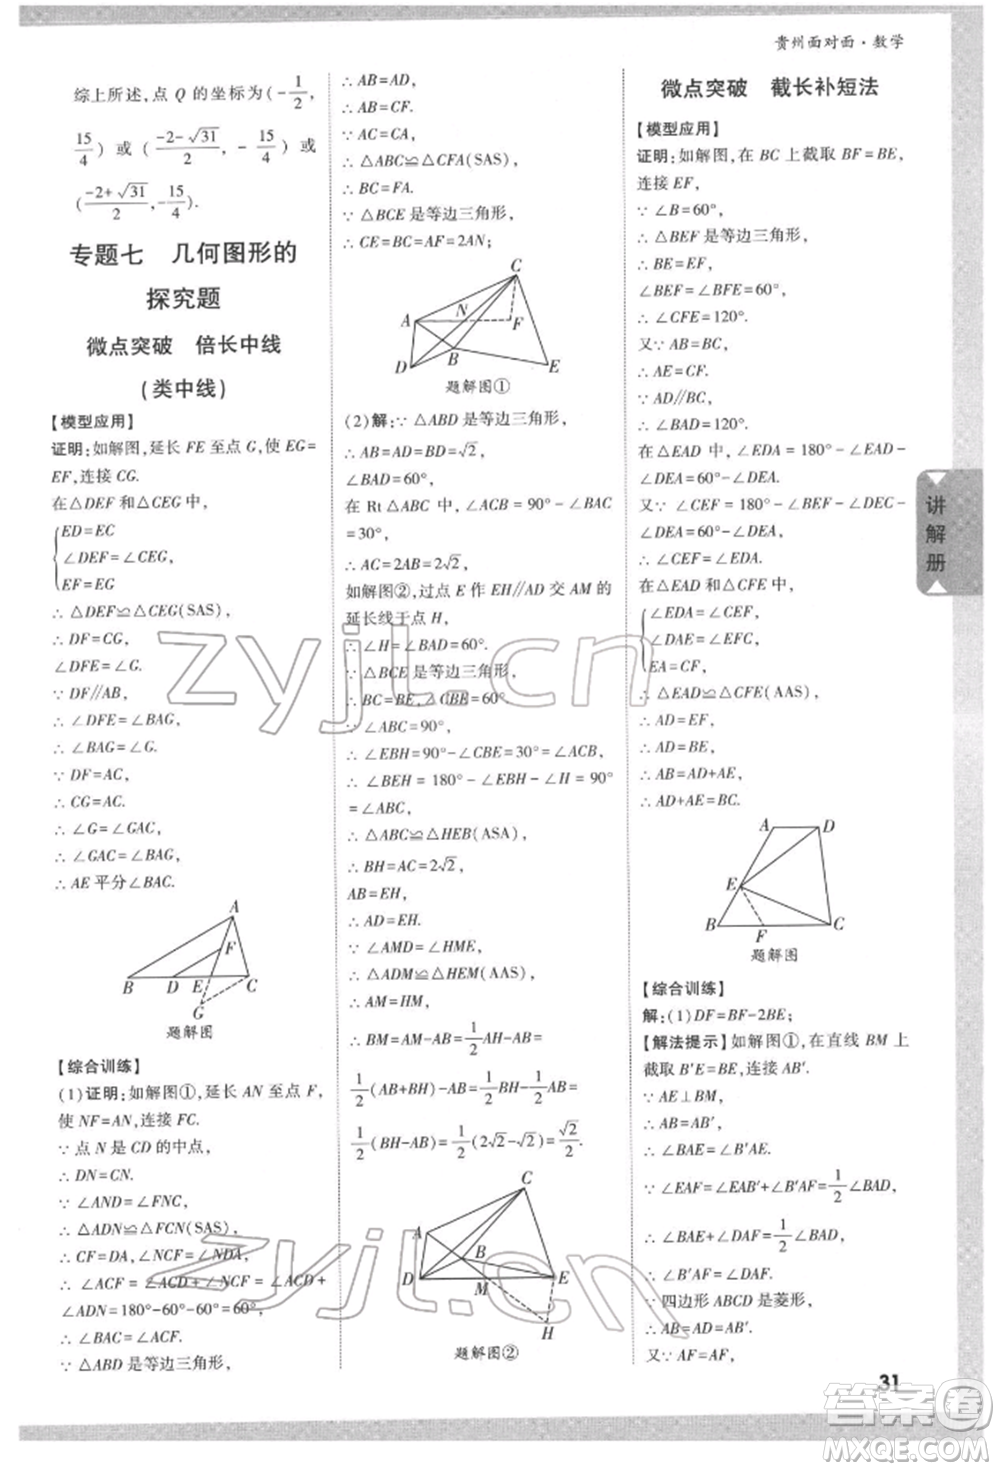 贵州面对面·数学
综上所述,点 Q 的坐标为(-1/2,
15/4) 或 ((-2-√31)/2, -15/4) 或
((-2+√31)/2,-15/4).
专题七 几何图形的
探究题
微点突破 倍长中线
(类中线)
【模型应用】
证明:如解图,延长 FE 至点 G,使 EG=
EF,连接 CG.
在△DEF 和△CEG 中,
ED=EC
∠DEF=∠CEG,
EF=EG
∴△DEF≌△CEG(SAS),
∴DF=CG,
∠DFE=∠G.
∵DF//AB,
∴∠DFE=∠BAG,
∴∠BAG=∠G.
∵DF=AC,
∴CG=AC.
∴∠G=∠GAC,
∴∠GAC=∠BAG,
∴AE 平分∠BAC.
A
F
B D E C
G
题解图
【综合训练】
(1)证明:如解图①,延长 AN 至点 F,
使 NF=AN,连接 FC.
∵点 N 是 CD 的中点,
∴DN=CN,
∴∠AND=∠FNC,
∴△ADN≌△FCN(SAS),
∴CF=DA,∠NCF=∠NDA,
∴∠ACF=∠ACD+∠NCF=∠ACD+
∠ADN=180°-60°-60°=60°,
∴∠BAC=∠ACF.
∵△ABD 是等边三角形,
∴AB=AD,
∴AB=CF.
∵AC=CA,
∴△ABC≌△CFA(SAS),
∴BC=FA.
∵△BCE 是等边三角形,
∴CE=BC=AF=2AN;
C
A N F
D B E
题解图①
(2)解:∵△ABD 是等边三角形,
∴AB=AD=BD=√2,
∠BAD=60°,
在 Rt△ABC 中,∠ACB=90°-∠BAC=
30°,
∴AC=2AB=2√2,
如解图②,过点 E 作 EH//AD 交 AM 的
延长线于点 H,
∴∠H=∠BAD=60°.
∵△BCE 是等边三角形,
∴BC=BE,∠CBE=60°,
∵∠ABC=90°,
∴∠EBH=90°-∠CBE=30°=∠ACB,
∴∠BEH=180°-∠EBH-∠H=90°
=∠ABC,
∴△ABC≌△HEB(ASA),
∴BH=AC=2√2,
AB=EH,
∴AD=EH.
∵∠AMD=∠HME,
∴△ADM≌△HEM(AAS),
∴AM=HM,
∴BM=AM-AB=1/2AH-AB=
1/2(AB+BH)-AB=1/2BH-1/2AB=
1/2(BH-AB)=1/2(2√2-√2)=√2/2.
C
A
B
D M E
H
题解图②
微点突破 截长补短法
【模型应用】
证明:如解图,在 BC 上截取 BF=BE,
连接 EF,
∵∠B=60°,
∴△BEF 是等边三角形,
∴BE=EF,
∠BEF=∠BFE=60°,
∴∠CFE=120°.
又∵AB=BC,
∴AE=CF.
∵AD//BC,
∴∠BAD=120°.
在△EAD 中,∠EDA=180°-∠BAD-
∠DEA=60°-∠DEA.
又∵∠CEF=180°-∠BEF-∠DEC-
∠DEA=60°-∠DEA,
∴∠CEF=∠EDA.
在△EAD 和△CFE 中,
∠EDA=∠CEF,
∠DAE=∠EFC,
EA=CF
∴△EAD≌△CFE(AAS),
∴AD=EF,
∴AD=BE,
∴AB=AD+AE,
∴AD+AE=BC.
A D
E
B F C
题解图
【综合训练】
解:(1)DF=BF-2BE;
【解法提示】如解图①,在直线 BM 上
截取 B'E=BE,连接 AB'.
∵AE⊥BM,
∴AB=AB',
∴∠BAE=∠B'AE,
∵∠EAF=∠B'AE+∠B'AF=1/2∠BAD,
∴∠BAE+∠DAF=1/2∠BAD,
∴∠B'AF=∠DAF.
∵四边形 ABCD 是菱形,
∴AB'=AB=AD,
又∵AF=AF,
讲解册
31
zyjl.cn
zyjl.cn
答案圈
MXQE.COM